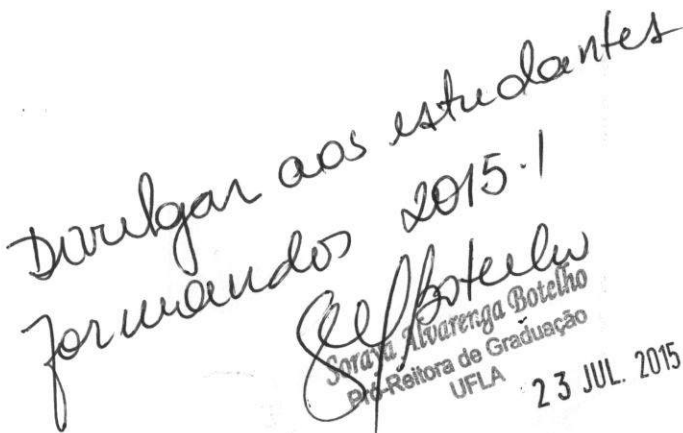 Divulgar aos estudantes
formandos 2015.1
SABotelho
Soraya Alvarenga Botelho
Pró-Reitora de Graduação
UFLA
23 JUL. 2015